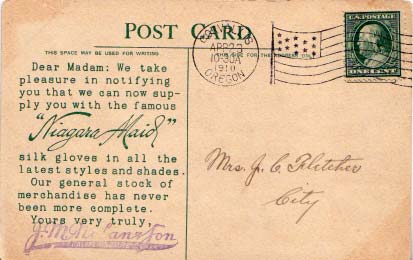 POST CARD
THIS SPACE MAY BE USED FOR WRITING
THIS SIDE FOR THE ADDRESS ONLY
APR 22
10-30A
1910
OREGON
U.S. POSTAGE
ONE CENT
Dear Madam: We take
pleasure in notifying
you that we can now sup-
ply you with the famous
"Niagara Maid"
silk gloves in all the
latest styles and shades.
Our general stock of
merchandise has never
been more complete.
Yours very truly,
Mrs. J. C. Fletcher
City